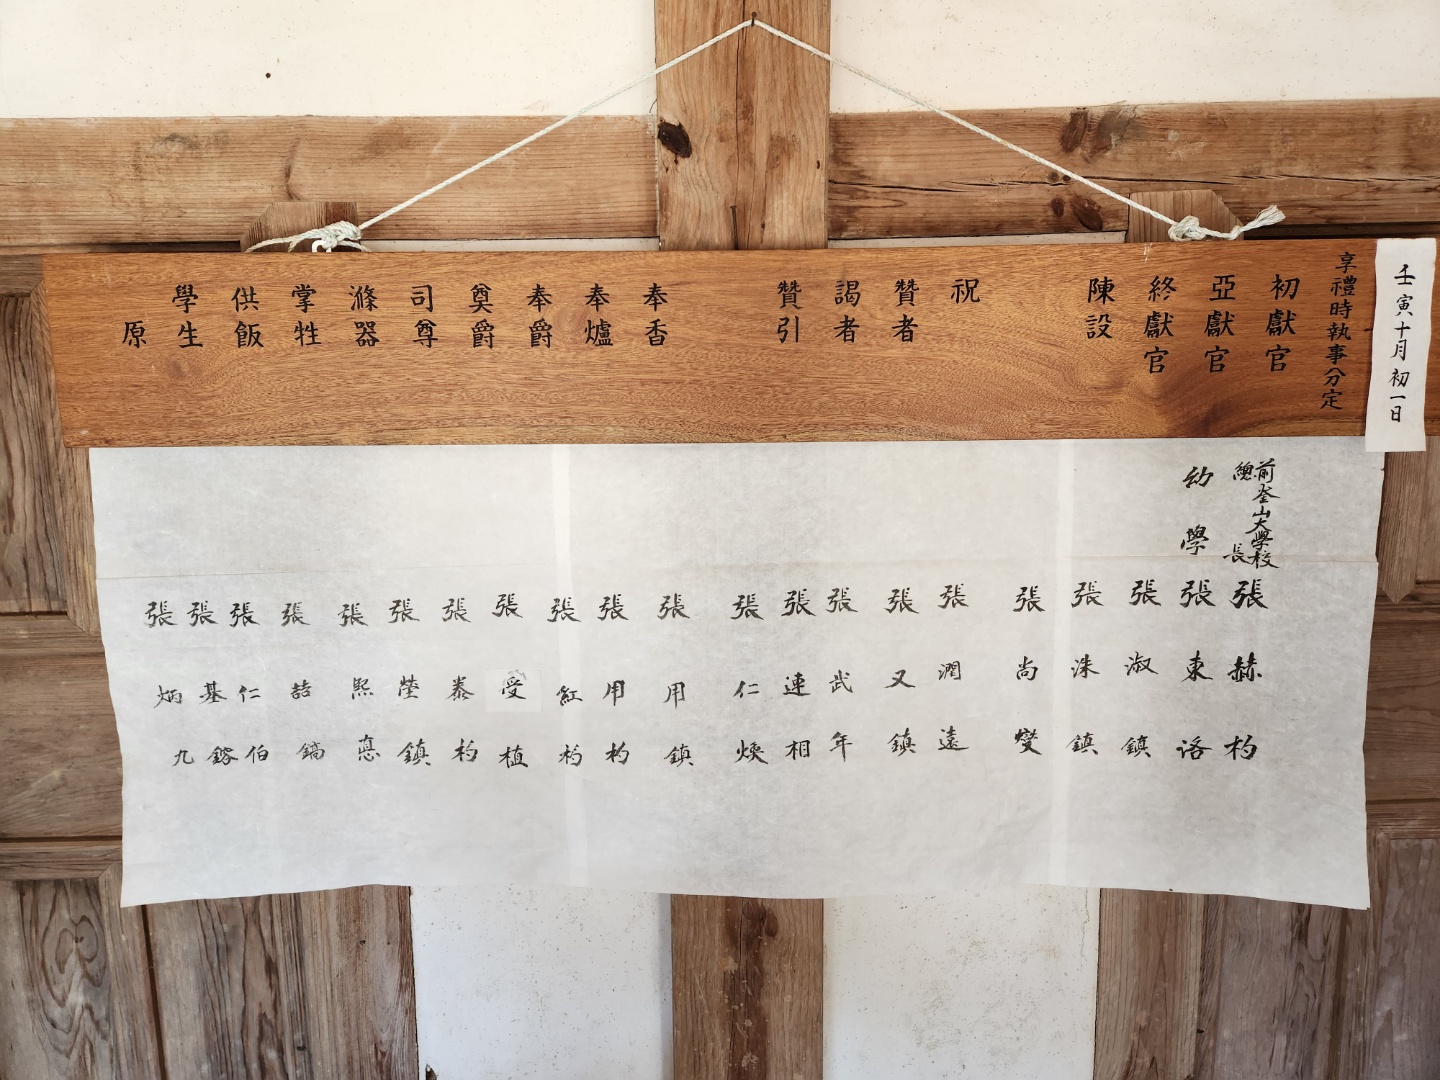 壬寅十月初一日
享禮時執事分定
初獻官
亞獻官
終獻官
陳設
祝
贊者
謁者
贊引
奉香
奉爐
奉爵
奠爵
司尊
滌器
掌牲
供飯
學生
原
前釜山大學校
總長
張赫杓
幼學
張東洛
張淑鎮
張洙鎮
張尚燮
張潤遠
張又鎮
張武年
張連相
張仁煥
張用鎮
張用杓
張紅杓
張受植
張泰杓
張瑩鎮
張熙悳
張喆鎬
張仁伯
張基鎔
張炳九